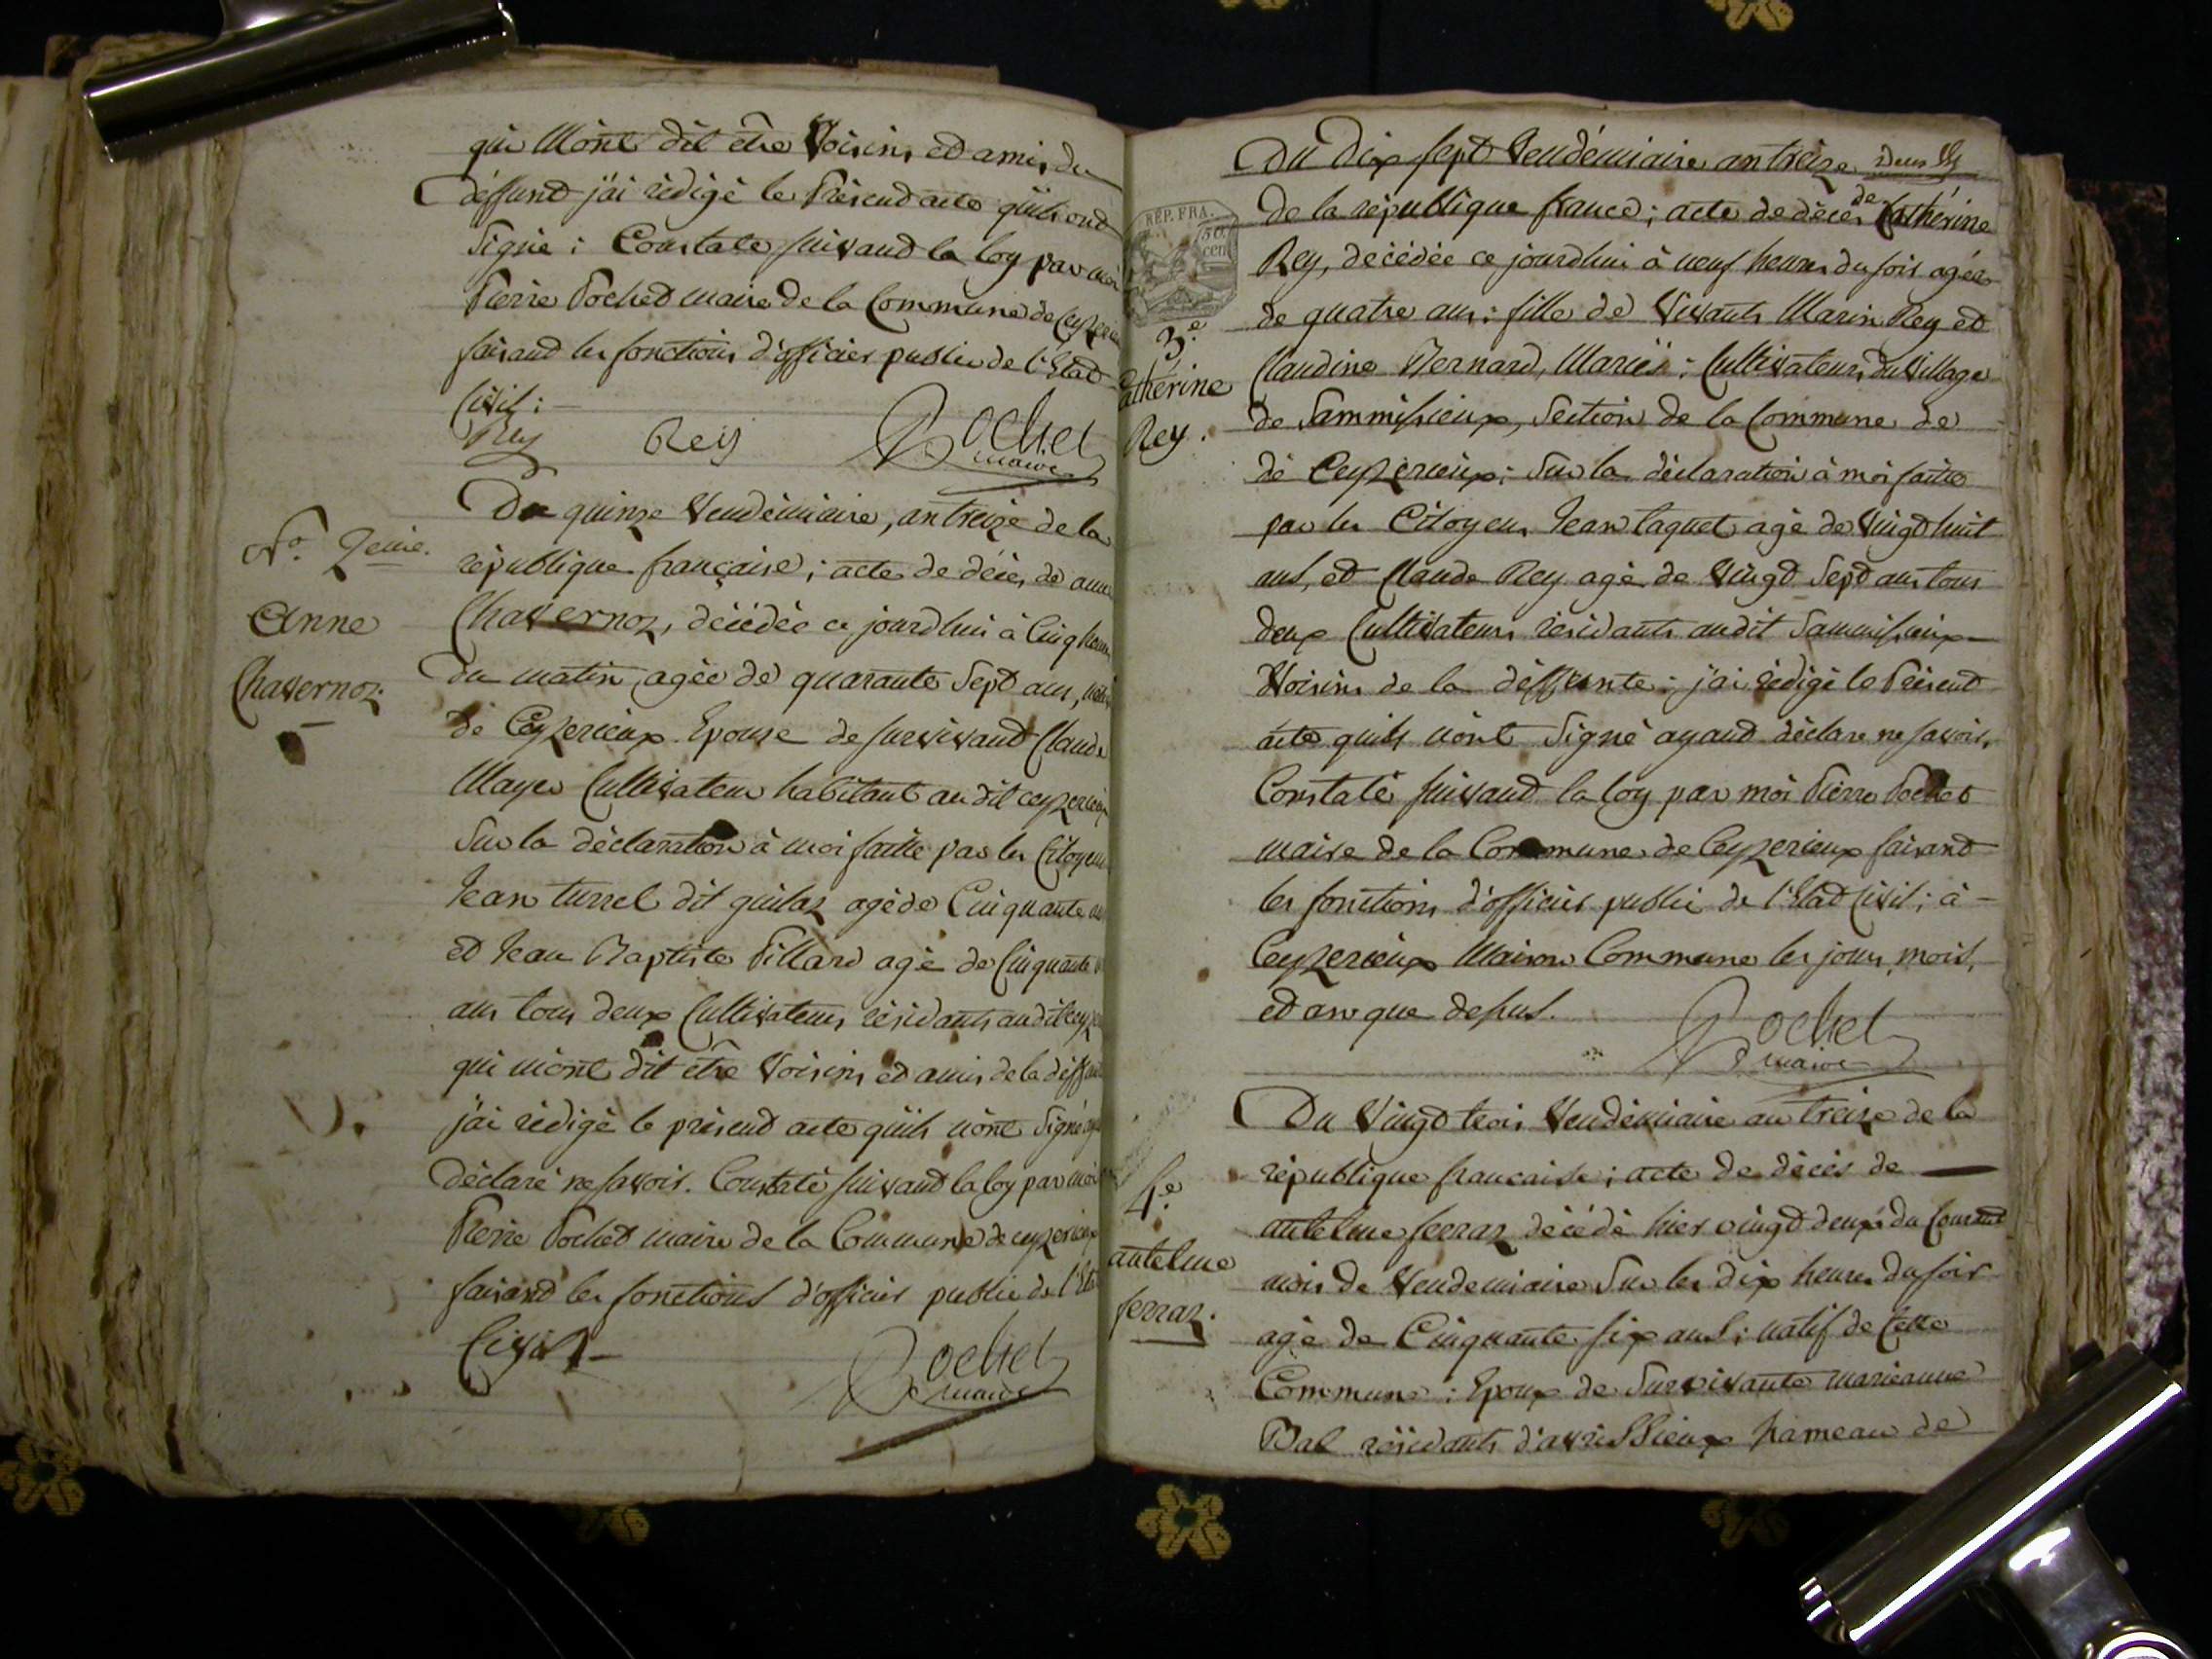 qui m'ont dit être Voisins et amis du
deffunt j'ai rédigé le Présend acte quils ond
Signé : Constaté suivand la loy par moi
Pierre Pochet maire de la Commune de Ceyzerieu
faisand les fonctions d'officier public de l'Etad
Civil :
Rey Rey Pochet
maire
N.o 2eme.
Anne
Chavernoz.
Du quinze Vendémiaire, an treize de la
république française ; acte de décès de anne
Chavernoz, décédée ce jourdhui à Cinq heures
du matin, agée de quarante Sept ans,
de Ceyzerieux Epouse de survivand Claude
Maye Cultivateur habitant audit ceyzerieux
Sur la déclaration à moi faitte par les Citoyens
Jean turrel dit guilaz agé de Cinquante
et Jean Baptiste Pillard agé de Cinquante
ans tous deux Cultivateurs résidants audit
qui m'ont dit être Voisins et amis de la
j'ai rédigé le présend acte quils n'ont Signé
déclaré ne savoir. Constaté suivand la loy par moi
Pierre Pochet maire de la Commune de ceyzerieux
faisand les fonctions d'officier public de l'
Civil
Pochet
maire
REP. FRA.
50
cen
3.e
Catherine
Rey.
Du Dix sept Vendémiaire an treize
de la république france ; acte de décès de Cathérine
Rey, décédée ce jourdhui à neuf heures du soir agée
de quatre ans : fille de Vivants Marin Rey et
Claudine Bernard, Mariés : Cultivateurs du Village
de Sammissieux, Section de la Commune de
de Ceyzerieux : Sur la déclaration à moi faitte
par les Citoyens Jean Laquet agé de Vingd huit
ans, et Claude Rey agé de Vingd Sept ans tous
deux Cultivateurs résidants audit Sammissieux
Voisins de la deffunte : j'ai rédigé le Présend
acte quils n'ont Signé ayand déclaré ne savoir,
Constaté suivand la loy par moi Pierre Pochet
maire de la Commune de Ceyzerieux faisand
les fonctions d'officier public de l'Etad Civil ; à
Ceyzerieux Maison Commune les jour, mois,
et an que dessus.
Pochet
maire
4.e
antelme
ferraz.
Du Vingd trois Vendémiaire an treize de la
république française ; acte de décès de
antelme ferraz décédé hier vingd deux du Courand
mois de Vendemiaire Sur les dix heures du soir
agé de Cinquante six ans ; natif de Cette
Commune : Epoux de Survivante marieanne
Bal résidants d'avrissieux hameau de